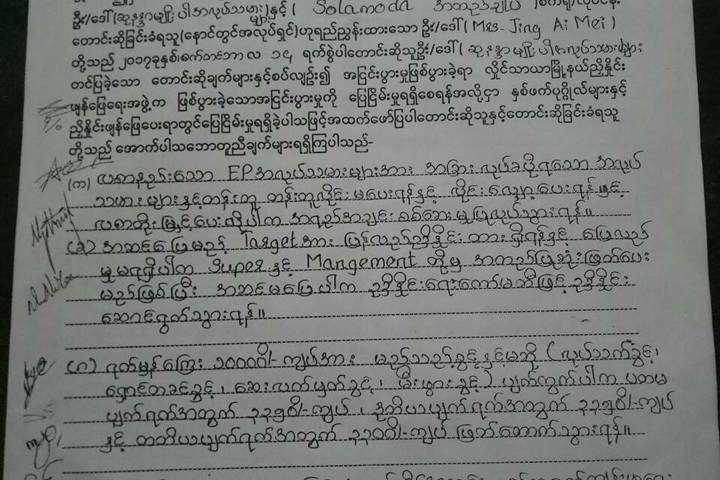 ဦး/ဒေါ် ( ဆုနန္ဒာမျိုးပါအလုပ်သမားများ ) နှင့် ( Solamoda အထည်ချုပ် ) စက်ရုံ/လုပ်ငန်း
တောင်းဆိုခြင်းခံရသူ (နောင်တွင်အလုပ်ရှင်) ဟုရည်ညွှန်းထားသော ဦး/ဒေါ် ( Mrs. Jing Ai Mei )
တို့သည် ၂၀၁၇ခုနှစ်၊ စက်တင်ဘာ လ ၁၄ ရက်စွဲပါတောင်းဆိုသူဦး/ဒေါ် ( ဆုနန္ဒာမျိုးပါအလုပ်သမားများ
တင်ပြခဲ့သော တောင်းဆိုချက်များနှင့်စပ်လျဉ်း၍ အငြင်းပွားမှုဖြစ်ပွားခဲ့ရာ လှိုင်သာယာမြို့နယ်ညှိနှိုင်း
ဖျန်ဖြေရေးအဖွဲ့က ဖြစ်ပွားခဲ့သောအငြင်းပွားမှုကို ပြေငြိမ်းမှုရရှိစေရန်အလို့ငှာ နှစ်ဖက်ပုဂ္ဂိုလ်များနှင့်
ညှိနှိုင်းဖျန်ဖြေပေးရာတွင်ပြေငြိမ်းမှုရရှိခဲ့ပါသဖြင့်အထက်ဖော်ပြပါတောင်းဆိုသူနှင့်တောင်းဆိုခြင်းခံရသူ
တို့သည် အောက်ပါသဘောတူညီချက်များရရှိကြပါသည်-
(က) လစာနည်းသော EP အလုပ်သမားများအား အခြား လုပ်ခပိုရသော အလုပ်
သမားများနှင့်တန်းတူ တန်းတူလိုင်းမပေးရန်နှင့် လိုင်းလျှော့ပေးရန်နှင့်
လစာတိုးမြှင့်ပေးလိုပါက အရည်အချင်းစစ်ဆေးမှုပြုလုပ်သွားရန်။
(ခ) အဆင်ပြေမည့် Target အား ပြန်လည်ညှိနှိုင်းထားရှိရန်နှင့် ပြေလည်
မှုမရရှိပါက Super နှင့် Mangement တို့မှ အတည်ပြုဆုံးဖြတ်ပေး
မည်ဖြစ်ပြီး အဆင်မပြေပါက ညှိနှိုင်းရေးကော်မတီဖြင့် ညှိနှိုင်း
ဆောင်ရွက်သွားရန်။
(ဂ) ရက်မှန်ကြေး ၁၀၀၀၀ိ/-ကျပ်အား မည်သည့်ခွင့်နှင့်မဆို (လုပ်သက်ခွင့်၊
ရှောင်တခင်ခွင့်၊ ဆေးလက်မှတ်ခွင့်၊ မီးဖွားခွင့်) ပျက်ကွက်ပါက ပထမ
ပျက်ရက်အတွက် ၃၃၅၀ိ/-ကျပ်၊ ဒုတိယပျက်ရက်အတွက် ၃၃၅၀ိ/-ကျပ်
နှင့် တတိယပျက်ရက်အတွက် ၃၃၀၀ိ/-ကျပ် ဖြတ်တောက်သွားရန်။